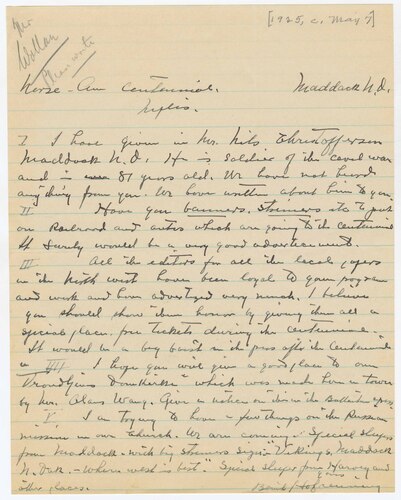 [1925, c. May 7]
Mr
Please write
Norse-Am Centennial. Maddock N.D.
I I have given in Mr. Nils Christofferson
Maddock N.D. He is soldier of the cevel war
and is 81 years old. We have not heard
anything from you. We have written about him to you.
II Have you banners, streamers etc to put
on Railroad and autos which are going to the Centennial
It surely would be a very good advertisement.
III All the editors for all the local papers
in the North west have been loyal to your program
and work and have advertized very much. I believe
you should show them honor by giving them all a
special place, free tickets during the centennial.
It would be a big boost in the press after the Centennial
IIII I hope you will give a good place to our
Trondhjems Domkirke" which was made here in town
by Mr. Olaus Wang. Give a notice on this in the
V I am trying to have a few things on the Russian
mission in our church. We are coming "Special sleeper
from Maddock - with big streamers sign "Vikings, Maddock
N. Dak. - Where west is best" Special sleeper from Harvey and
other places.